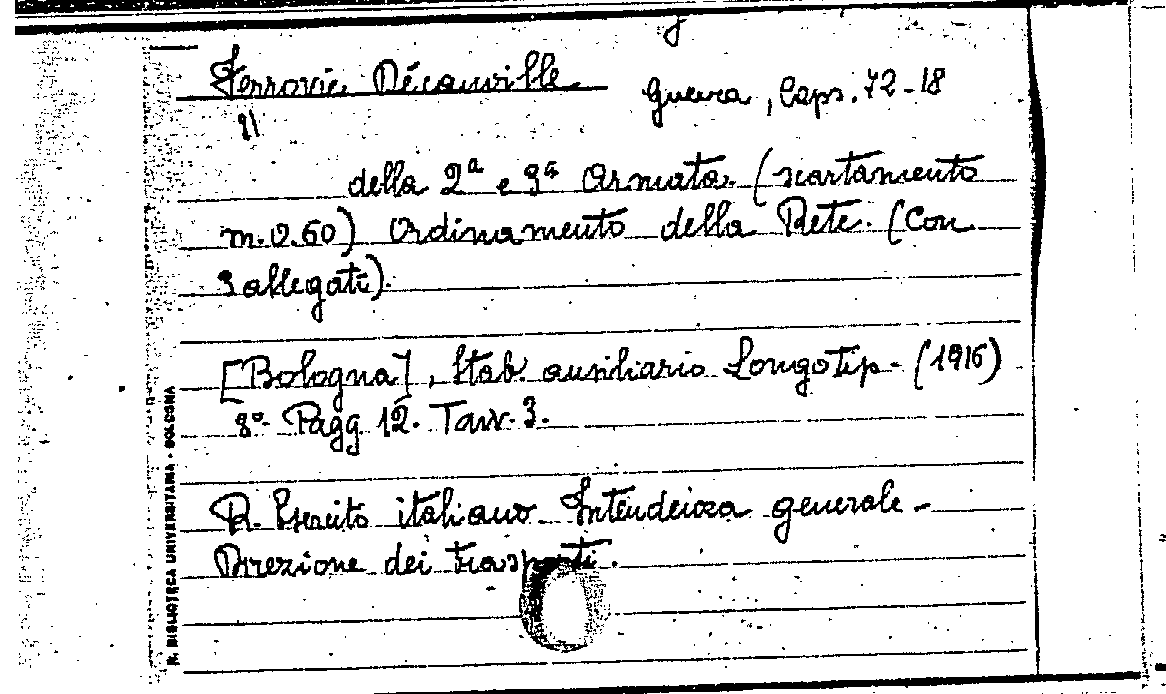 Ferrovie Décauville
Guerra, Caps. 72-18
"
della 2ª e 3ª Armata. (scartamento
m. 0.60) Ordinamento della Rete. (Con
3 allegati).
[Bologna], Stab. ausiliario Longotip - (1916)
8º- Pagg. 12. Tavv. 3.
R. Esercito italiano Intendenza generale -
Direzione dei trasporti.
R. BIBLIOTECA UNIVERSITARIA - BOLOGNA